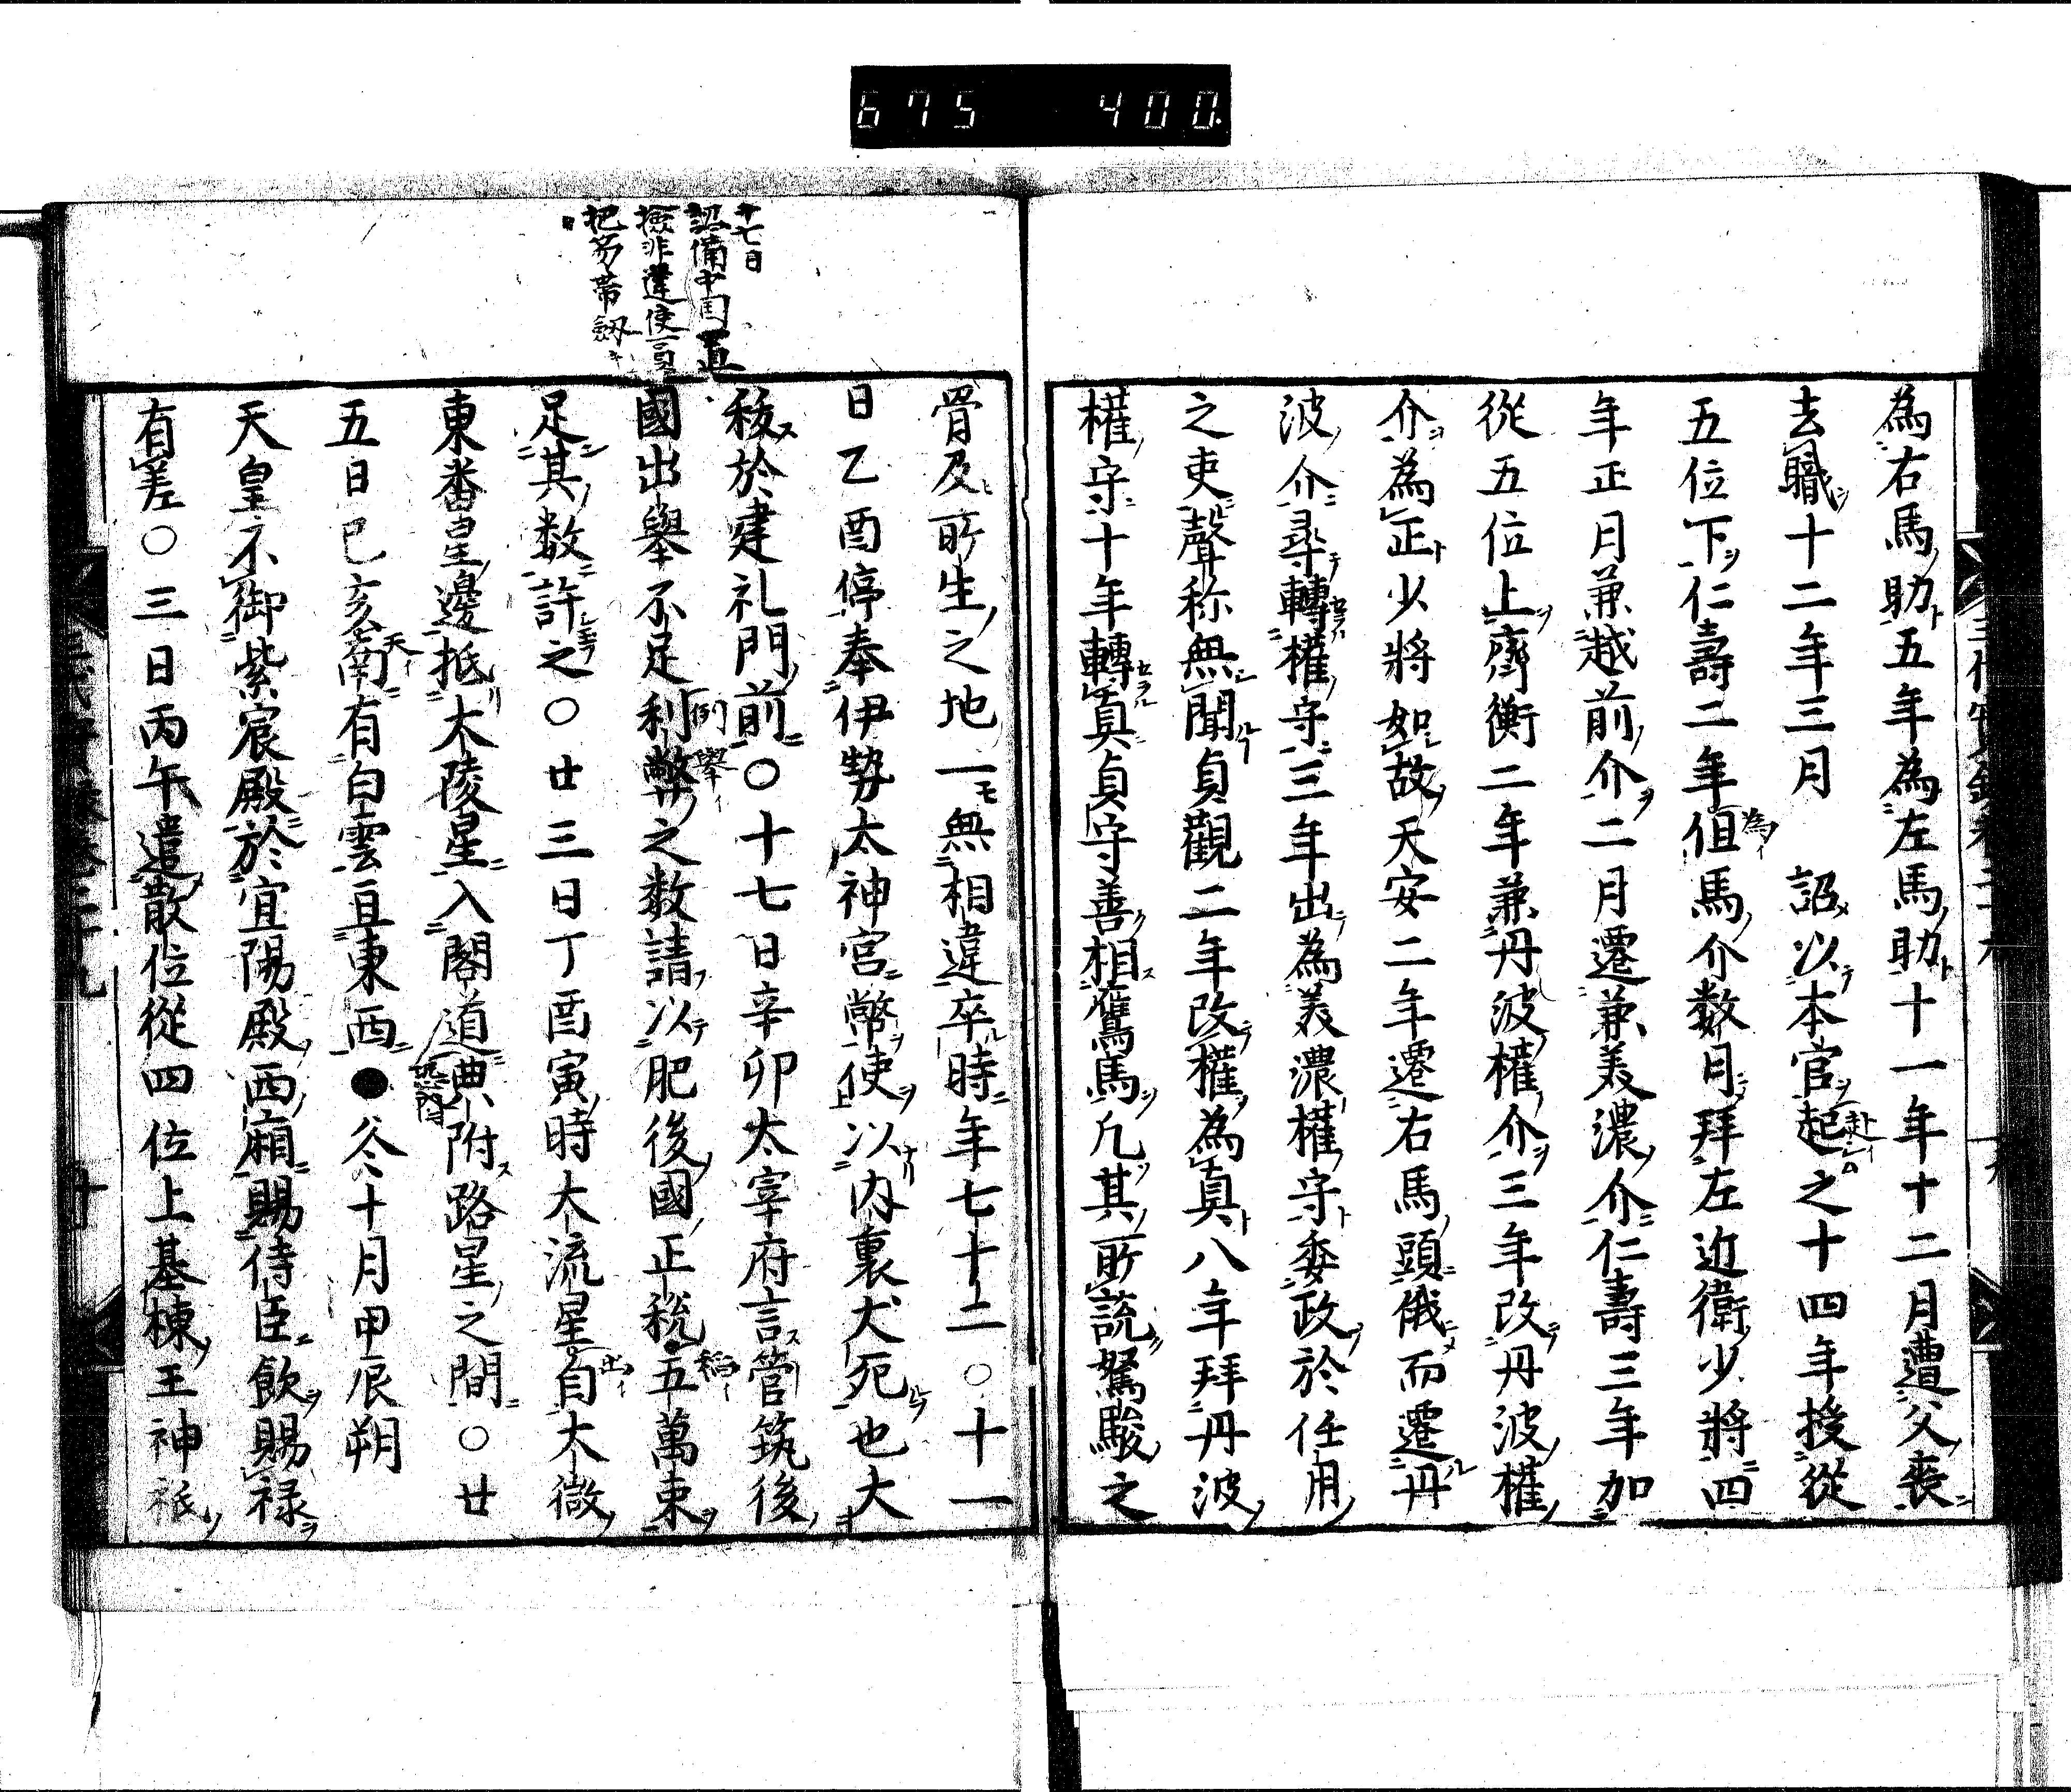 675 400.
為右馬助五年為左馬助十一年十二月遭父喪
去職十二年三月 詔以本官起之十四年授從
五位下仁壽二年但馬介数月拜左近衛少將四
年正月兼越前介二月遷兼美濃介仁壽三年加
從五位上齊衡二年兼丹波權介三年改丹波權
介為正少將如故天安二年遷右馬頭俄而遷丹
波介尋轉權守三年出為美濃權守委政於任用
之吏聲称無聞貞觀二年改權為真八年拜丹波
權守十年轉真貞守善相鷹馬凡其所說駑駿之
十七日
詔備中国
檢非違使
把笏帶劔
骨及所生之地一無相違卒時年七十二〇十一
日乙酉停奉伊勢太神宮幣使以内裏犬死也大
祓於建礼門前〇十七日辛卯太宰府言管筑後
國出舉不足利弊之数請以肥後國正税五萬束
足其数許之〇廿三日丁酉寅時大流星自太微
東番星邊抵太陵星入閣道典附路星之間〇廿
五日己亥南有白雲亘東西●冬十月甲辰朔
天皇不御紫宸殿於宜陽殿西廂賜侍臣飲賜禄
有差〇三日丙午遣散位從四位上基棟王神祇